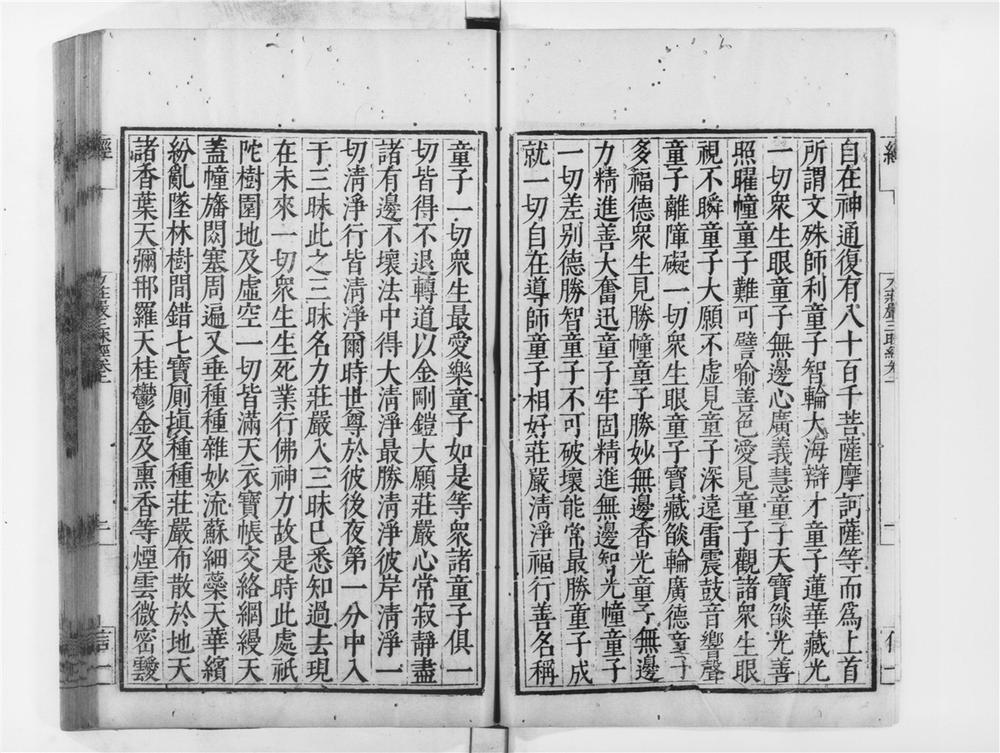 自在神通復有八十百千菩薩摩訶薩等而爲上首
所謂文殊師利童子智輪大海辯才童子蓮華藏光
一切衆生眼童子無邊心廣義慧童子天寶燄光善
照曜幢童子難可譬喻善色愛見童子觀諸衆生眼
視不瞬童子大願不虛見童子深遠雷震鼓音響聲
童子離障礙一切衆生眼童子寶藏燄輪廣德童子
多福德衆生見勝幢童子勝妙無邊香光童子無邊
力精進善大奮迅童子牢固精進無邊智光幢童子
一切差別德勝智童子不可破壞能常最勝童子成
就一切自在導師童子相好莊嚴淸淨福行善名稱
童子一切衆生最愛樂童子如是等衆諸童子俱一
切皆得不退轉道以金剛鎧大願莊嚴心常寂靜盡
諸有邊不壞法中得大淸淨最勝淸淨彼岸淸淨一
切淸淨行皆淸淨爾時世尊於彼後夜第一分中入
于三昧此之三昧名力莊嚴入三昧已悉知過去現
在未來一切衆生生死業行佛神力故是時此處祇
陀樹園地及虛空一切皆滿天衣寶帳交絡綱縵天
蓋幢旛閦塞周遍又垂種種雜妙流蘇細蘂天華繽
紛亂墜林樹間錯七寶厠塡種種莊嚴布散於地天
諸香葉天彌那羅天桂鬱金及熏香等煙雲微密靉
經
力莊嚴三昧經卷上
信一